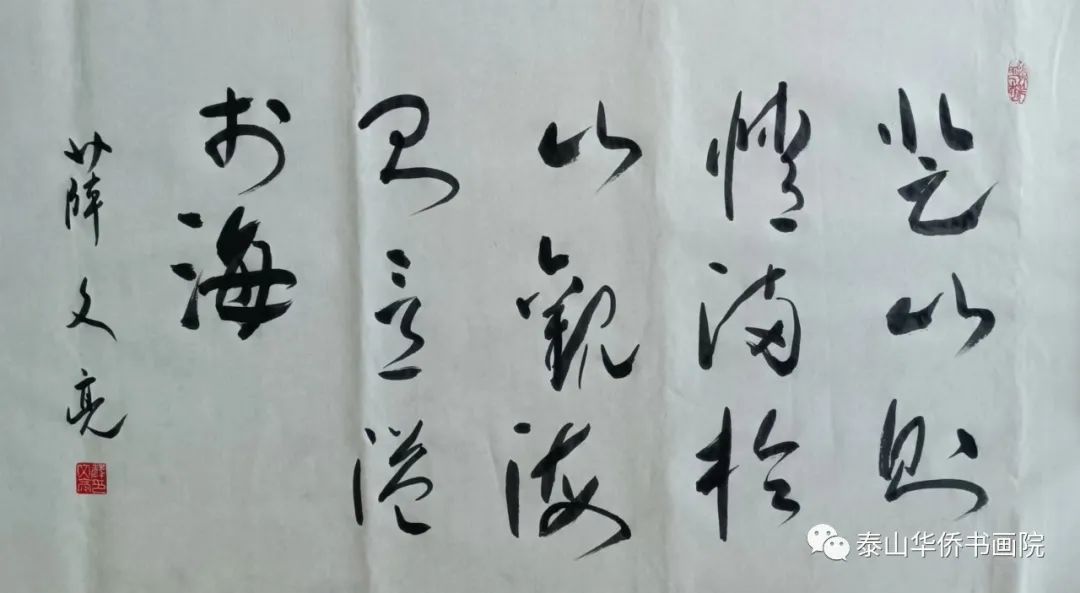 登山则
情满於
山觀海
则意溢
於海
薛文亮
泰山华侨书画院